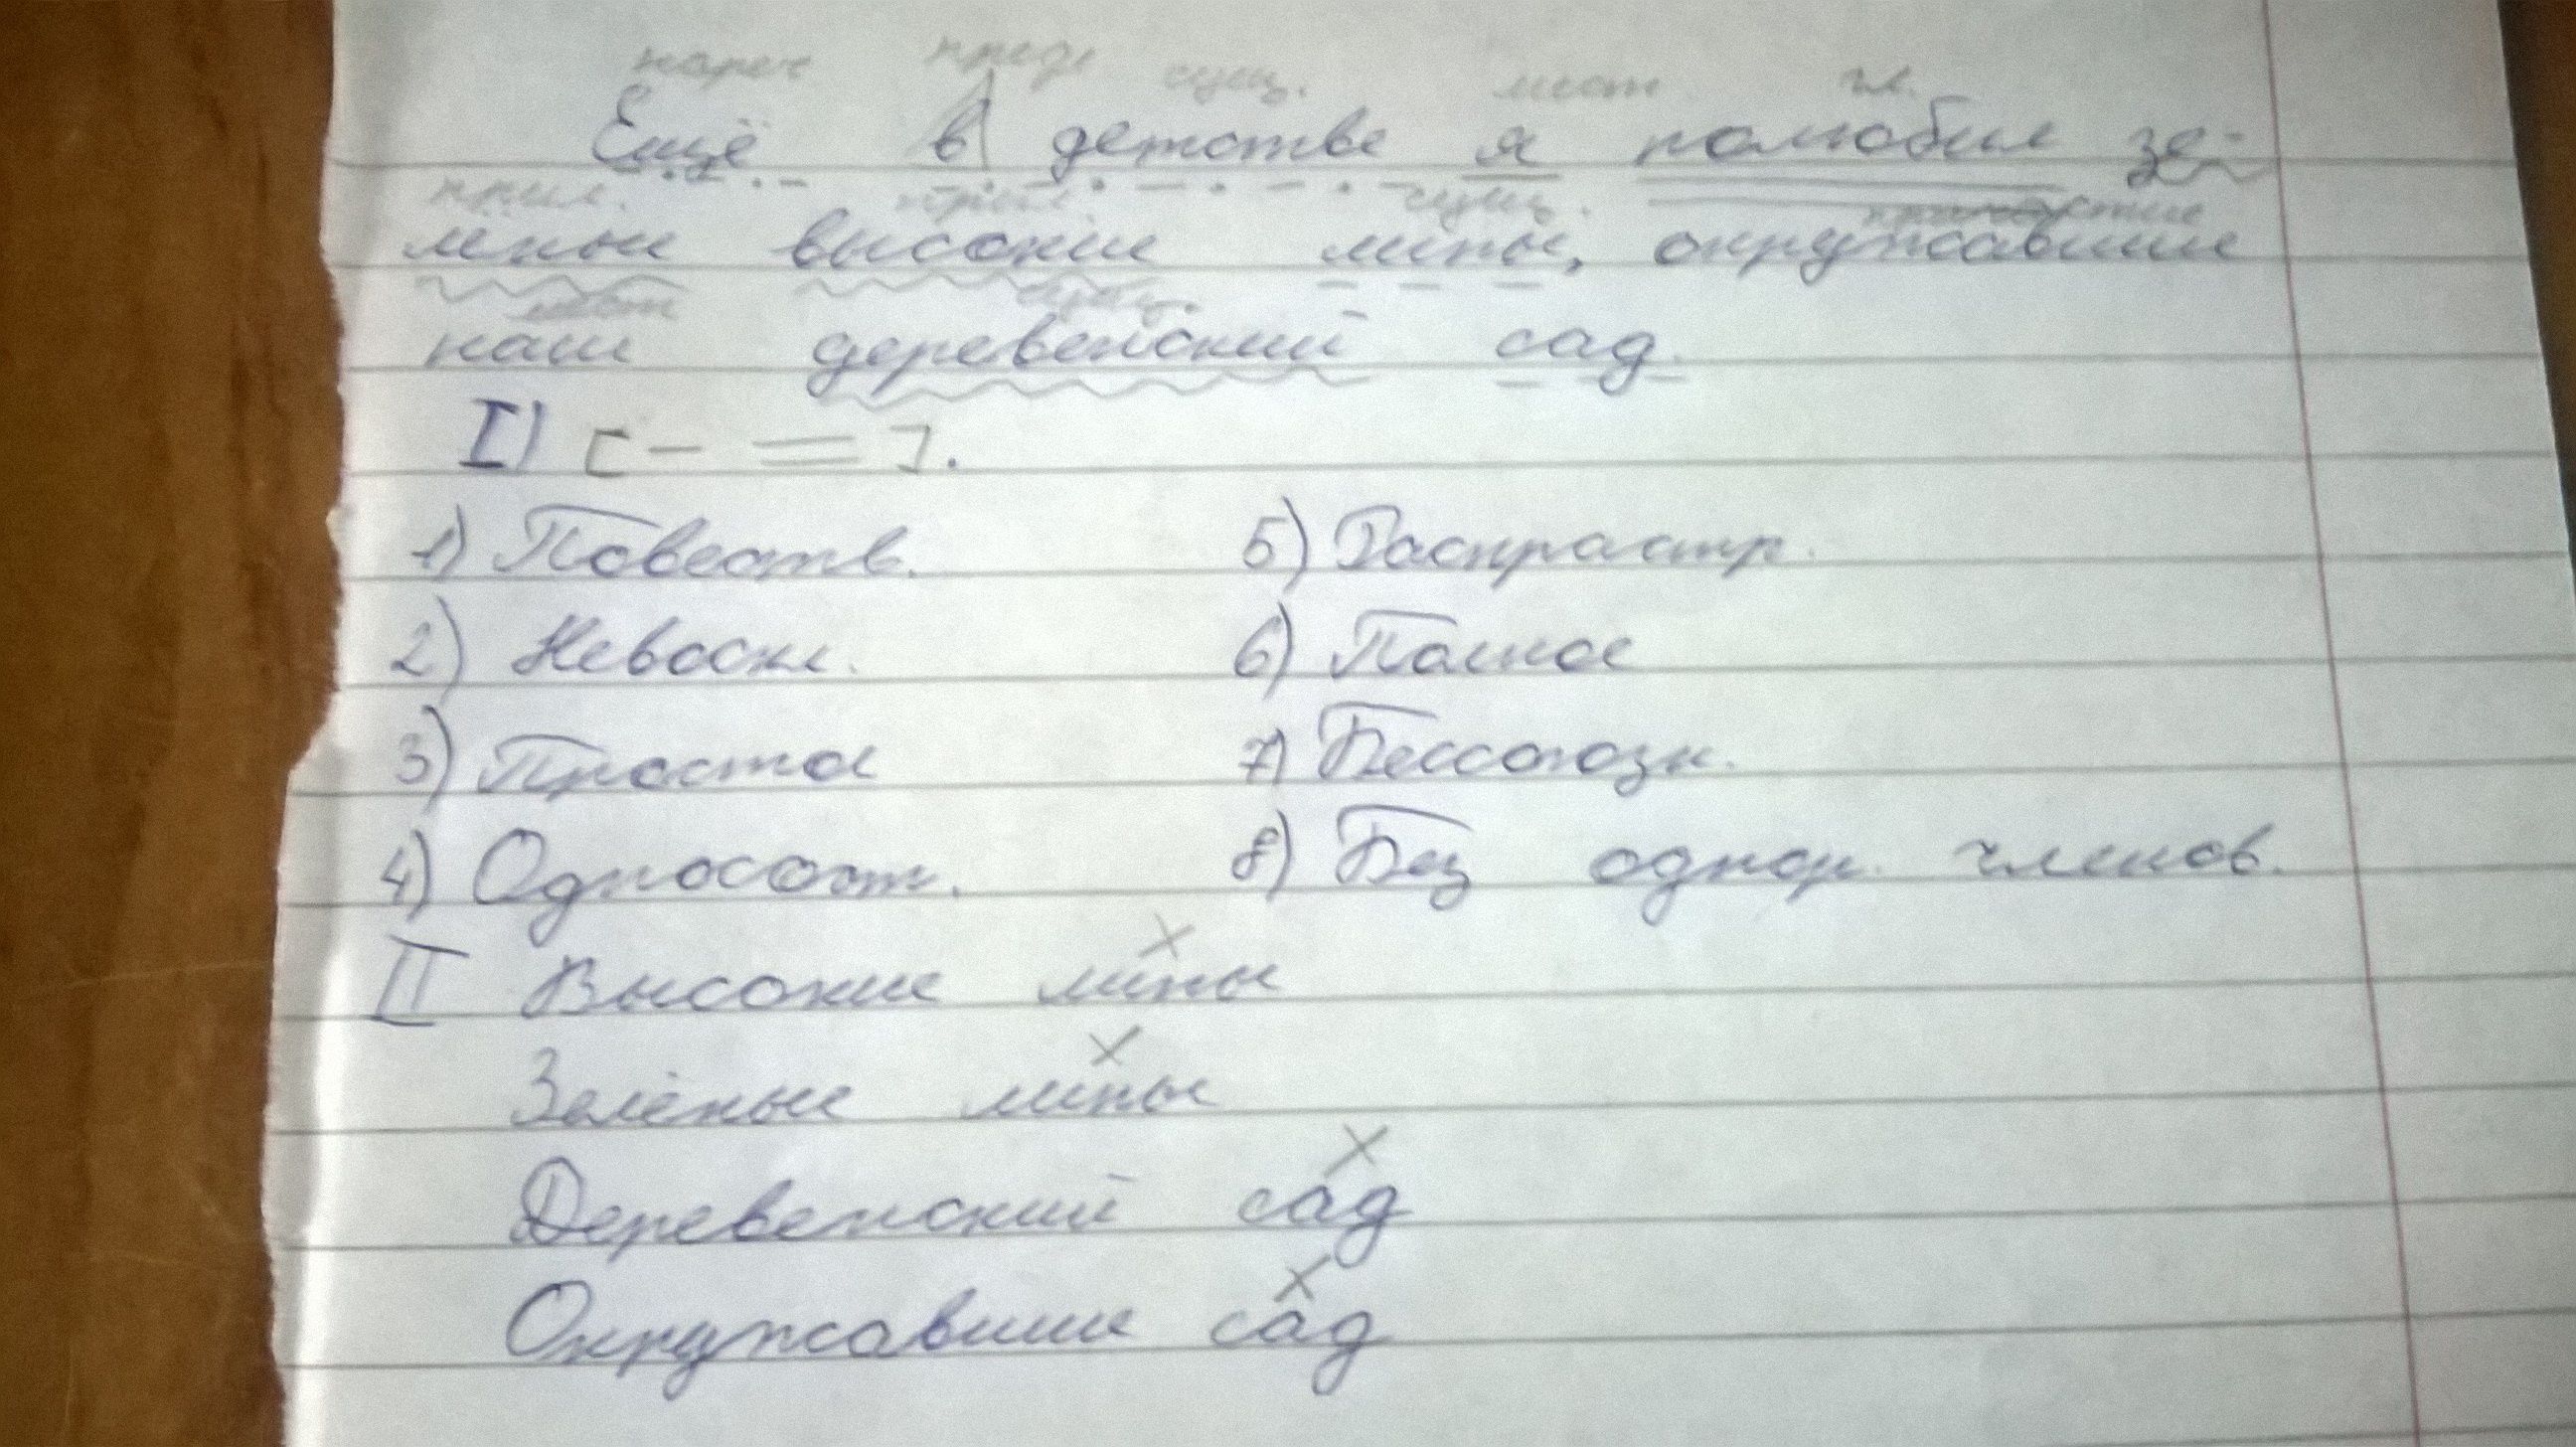 нареч предл сущ. мест гл.
Ещё в детстве я полюбил зе-
прил. прил. сущ. причастие
лёные высокие липы, окружавшие
мест сущ.
наш деревенский сад.
I) [— =].
1) Повеств. 5) Распростр.
2) Невоскл. 6) Полное
3) Простое 7) Бессоюзн.
4) Односост. 8) Без однор. членов.
II Высокие липы
Зелёные липы
Деревенский сад
Окружавшие сад